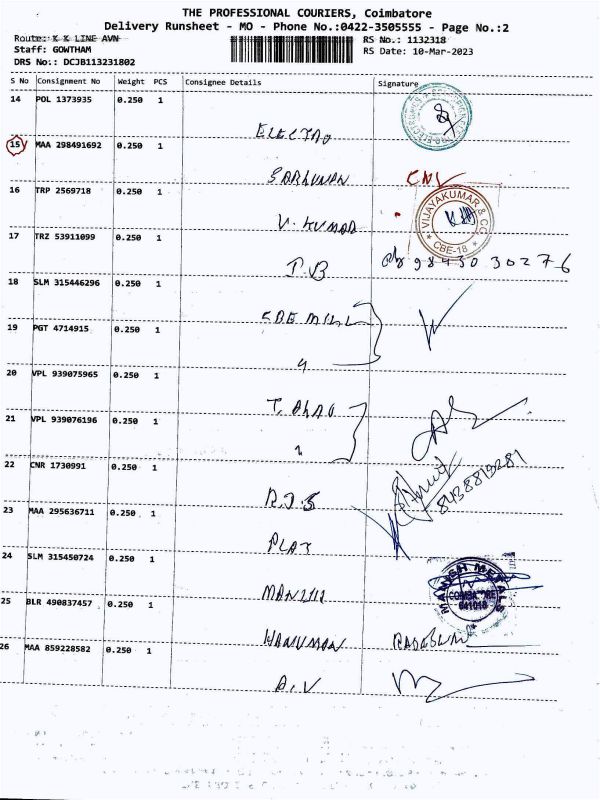 THE PROFESSIONAL COURIERS, Coimbatore
Delivery Runsheet - MO - Phone No.:0422-3505555 - Page No.:2
Route: K K LINE AVN
Staff: GOWTHAM
DRS No.: DCJB113231802
RS No.: 1132318
RS Date: 10-Mar-2023
S No Consignment No Weight PCS Consignee Details Signature
14 POL 1373935 0.250 1 ELECTRO
15 MAA 298491692 0.250 1 CNV
16 TRP 2569718 0.250 1 V. KUMAR
VIJAYAKUMAR & CO
CBE-18
17 TRZ 53911099 0.250 1 P.B 98430 30276
18 SLM 315446296 0.250 1
19 PGT 4714915 0.250 1 "
20 VPL 939075965 0.250 1
21 VPL 939076196 0.250 1 "
22 CNR 1730991 0.250 1 R.J.S 8438819281
23 MAA 295636711 0.250 1 PLAT
24 SLM 315450724 0.250 1
MANISH METALS
COIMBATORE
641018
25 BLR 490837457 0.250 1 HANUMAN
26 MAA 859228582 0.250 1 A.V